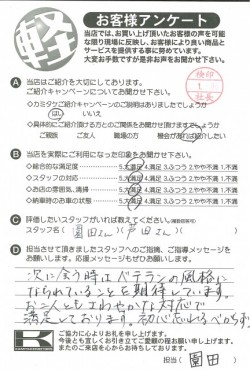 軽
お客様アンケート
当店では、お買い上げ頂いたお客様の声を可能
な限り現場に反映し、お客様により良い商品と
サービスを提供する事に努めています。
大変お手数ですが是非お声をお聞かせ下さい。
検印
社長
A 当店はご紹介を大切にしております。
ご紹介キャンペーンについてお聞かせ下さい。
◇カミタケご紹介キャンペーンのご説明はありましたでしょうか
はい いいえ
◇具体的にご紹介頂ける方とのご関係をお聞かせ頂けますでしょうか
ご親族 ご友人 職場の方 機会があれば紹介したい
B 当店を実際にご利用になった印象をお聞かせ下さい。
◇総合的な満足度 5.大満足 4.満足 3.ふつう 2.やや不満 1.不満
◇スタッフの対応 5.大満足 4.満足 3.ふつう 2.やや不満 1.不満
◇お店の雰囲気、清掃 5.大満足 4.満足 3.ふつう 2.やや不満 1.不満
◇納車時のお車の状態 5.大満足 4.満足 3.ふつう 2.やや不満 1.不満
C 評価したいスタッフがいれば教えてください。(複数回答可)
スタッフ名( 園田さん 芦田さん )
D 担当させて頂きましたスタッフへのご指摘、ご指導メッセージを
お願いします。応援メッセージもぜひお願い致します。
次に会う時はベテランの風格に
なられていることを期待しています。
お二人ともさわやかな対応で
満足しております。初心忘れるべからず
ご協力に心よりお礼を申し上げます。
今後とも宜しくお引き立てご愛顧の程お願い申し上げます。
またのご来店を心からお待ちしております。
担当( 園田 )